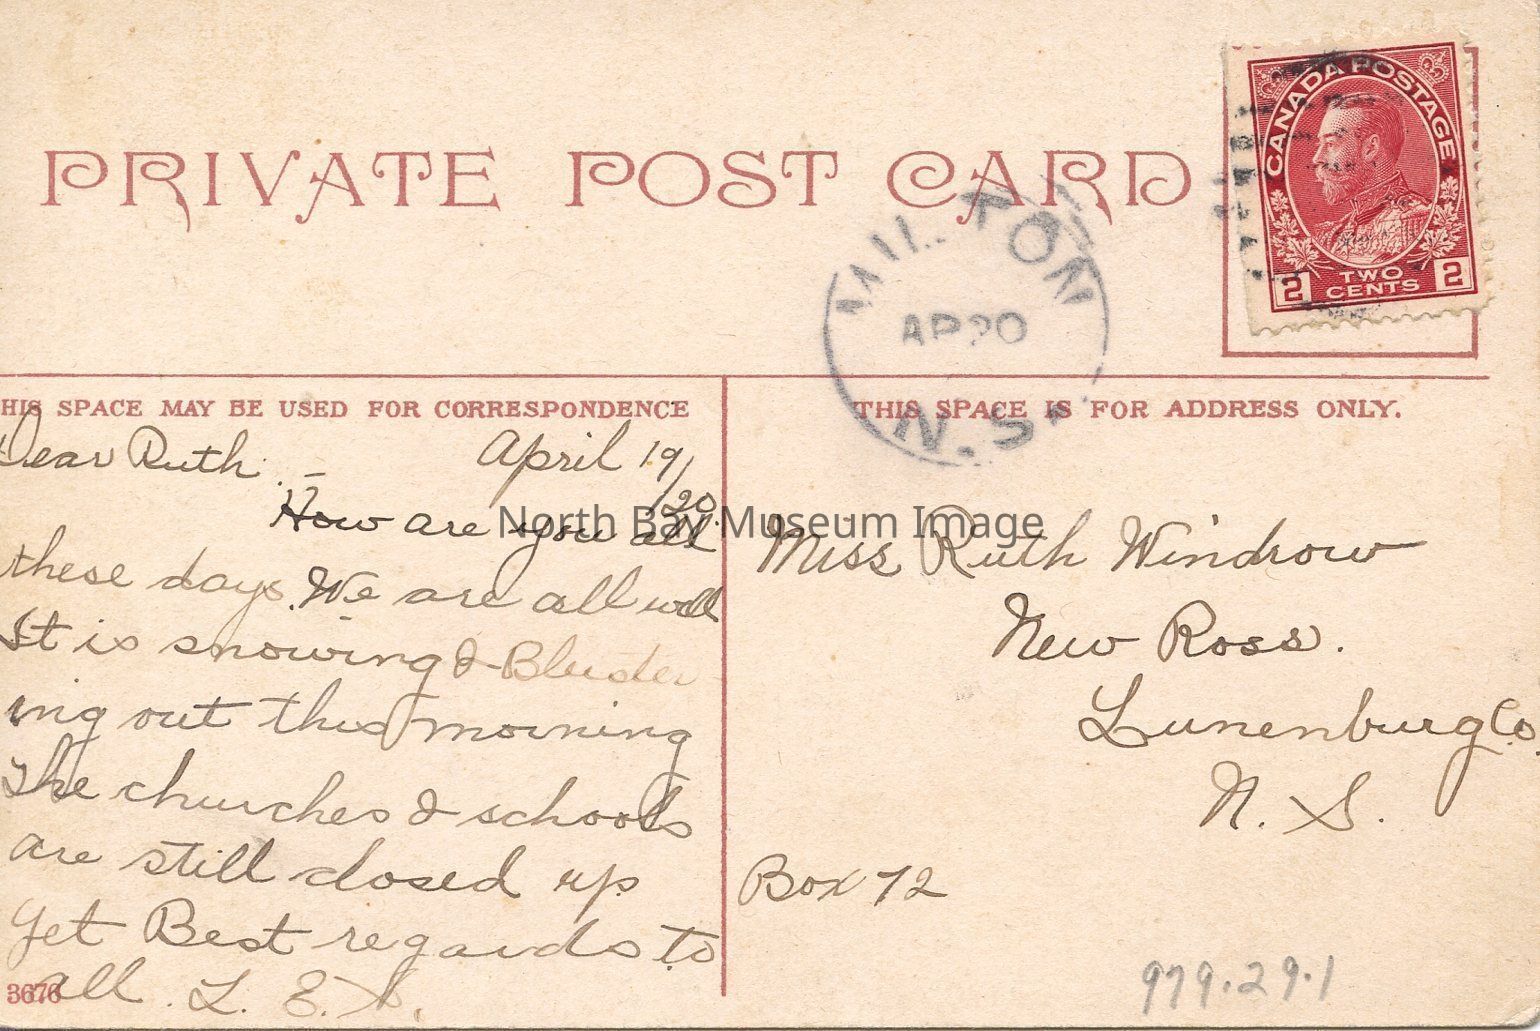 PRIVATE POST CARD
CANADA POSTAGE
2 TWO CENTS 2
MILTON
AP 20
N.S.
HIS SPACE MAY BE USED FOR CORRESPONDENCE
THIS SPACE IS FOR ADDRESS ONLY.
Dear Ruth. – April 19/20.
How are you all
these days. We are all well
It is snowing & Bluster
ing out this morning
The churches & schools
are still closed up
yet Best regards to
all. L. E.
3676
North Bay Museum Image
Miss Ruth Windrow
New Ross.
Lunenburg Co.
N. S.
Box 72
979.29.1